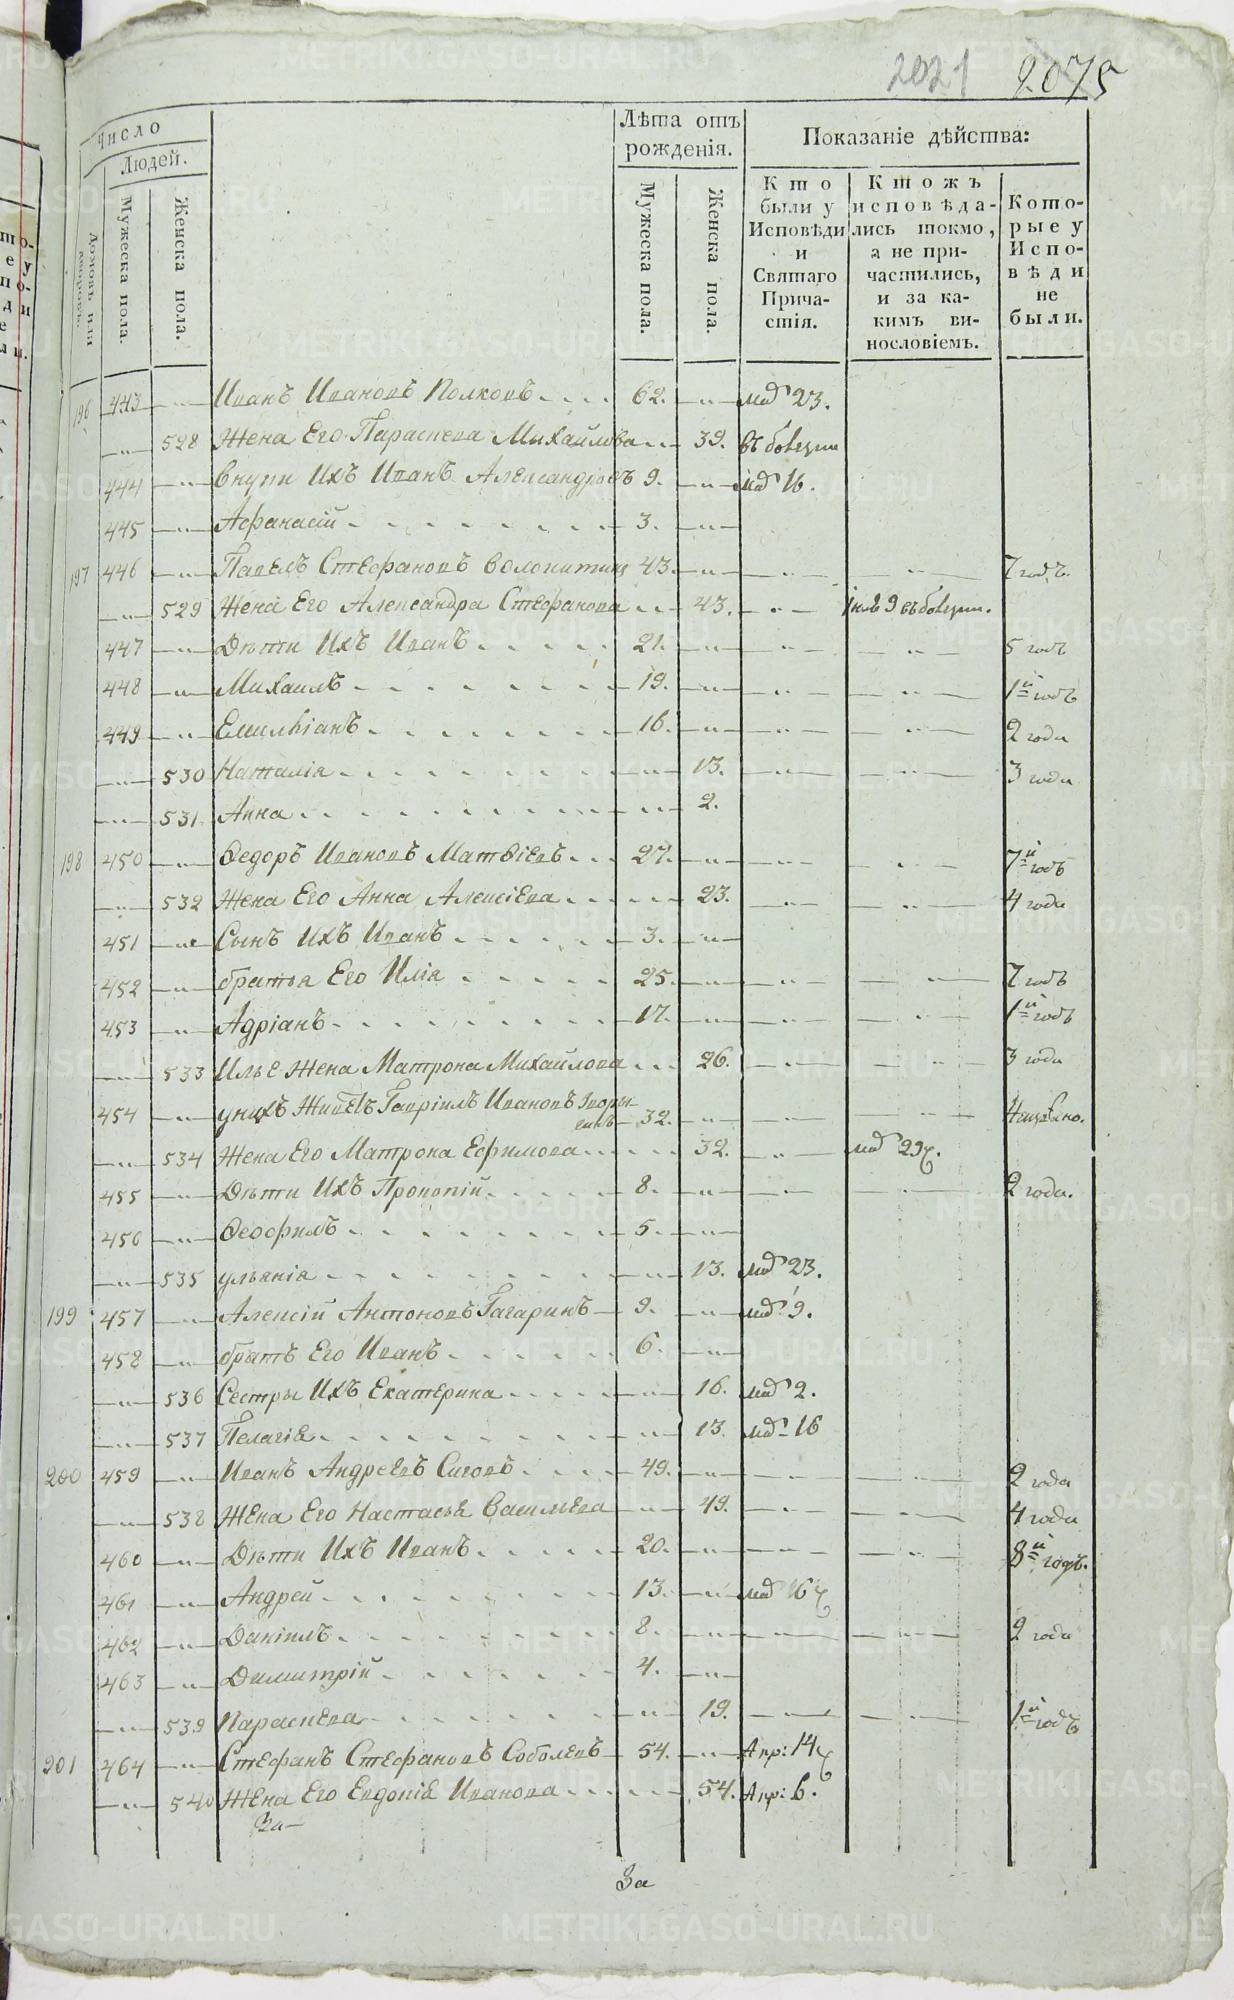 2021 2075
Число
Людей.
Домовъ или
Мужеска пола.
Женска пола.
Лѣта отъ
рожденія.
Мужеска пола.
Женска пола.
Показаніе дѣйства:
Кто
были у
Исповѣди
и
Святаго
Прича-
стія.
Ктожъ
исповѣда-
лись токмо,
а не при-
частились,
и за ка-
кимъ ви-
нословіемъ.
Кото-
рые у
Испо-
вѣди
не
были.
196 443 Иванъ Ивановъ Полковъ 62. 23.
528 Жена Его Параскева Михайлова 39.
444 внуки Ихъ Иванъ Александровъ 9. 16.
445 Афанасій 3.
197 446 Павелъ Стефановъ 43. 7 годъ.
529 Жена Его Александра Стефанова 43.
447 Дѣти Ихъ Иванъ 21. 5 годъ
448 Михаилъ 19. 1й годъ
449 Емиліанъ 16. 2 года
530 Наталія 13. 3 года
531 Анна 2.
198 450 Ѳедоръ Ивановъ Матѳіевъ 27. 7й годъ
532 Жена Его Анна Алексіева 23. 4 года
451 Сынъ Ихъ Иванъ 3.
452 братья Его Илія 25. 7 годъ
453 Адріанъ 17. 1й годъ
533 Илье Жена Матрона Михайлова 26. 3 года
454 унихъ Живетъ Гавріилъ Ивановъ 32.
534 Жена Его Матрона Ефимова 32.
455 Дѣти Ихъ Прокопій 8. 2 года.
456 Ѳеофилъ 5.
535 ульянія 13. 23.
199 457 Алексій Антоновъ Гагаринъ 9. 9.
458 братъ Его Иванъ 6.
536 Сестры Ихъ Екатерина 16. 2.
537 Пелагія 13. 16
200 459 Иванъ Андреевъ Сиговъ 49. 2 года
538 Жена Его Настасья Васильева 49. 4 года
460 Дѣти Ихъ Иванъ 20. 8й годъ.
461 Андрей 13. 16
462 Даніилъ 8. 2 года
463 Димитрій 4.
539 Параскева 19. 1й годъ
201 464 Стефанъ Стефановъ Соболевъ 54. Апр: 14
540 Жена Его Евдокія Иванова 54. Апр: 6.
За
За
METRIKI.GASO-URAL.RU